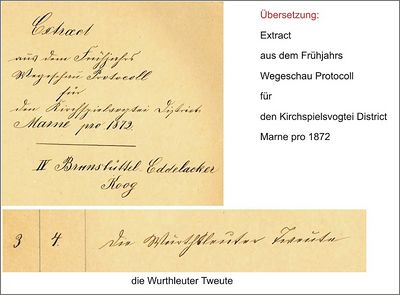 Extract
aus dem Frühjahrs
Wegeschau Protocoll
für
den Kirchspielsvogtei District
Marne pro 1872.
IV Brunsbüttel-Eddelacker
Koog
Übersetzung:
Extract
aus dem Frühjahrs
Wegeschau Protocoll
für
den Kirchspielsvogtei District
Marne pro 1872
3 4. die Wurthleuter Tweute
die Wurthleuter Tweute